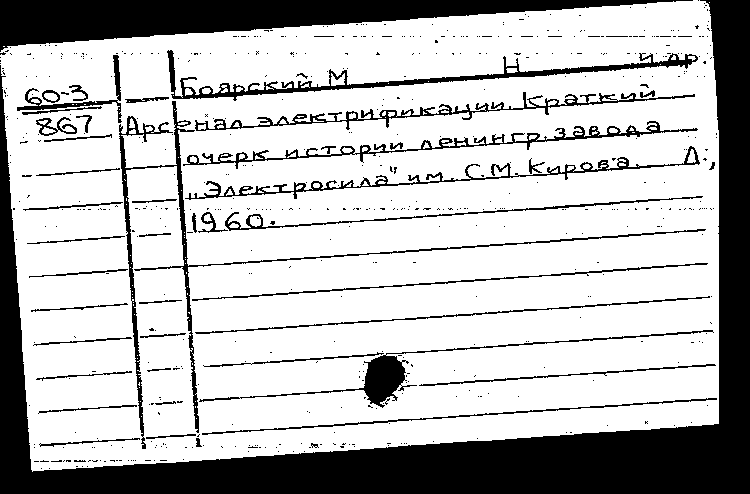 60-3 Боярский М Н и др.
867 Арсенал электрификации. Краткий
очерк истории ленингр. завода
„Электросила" им. С.М. Кирова. Л.,
1960.